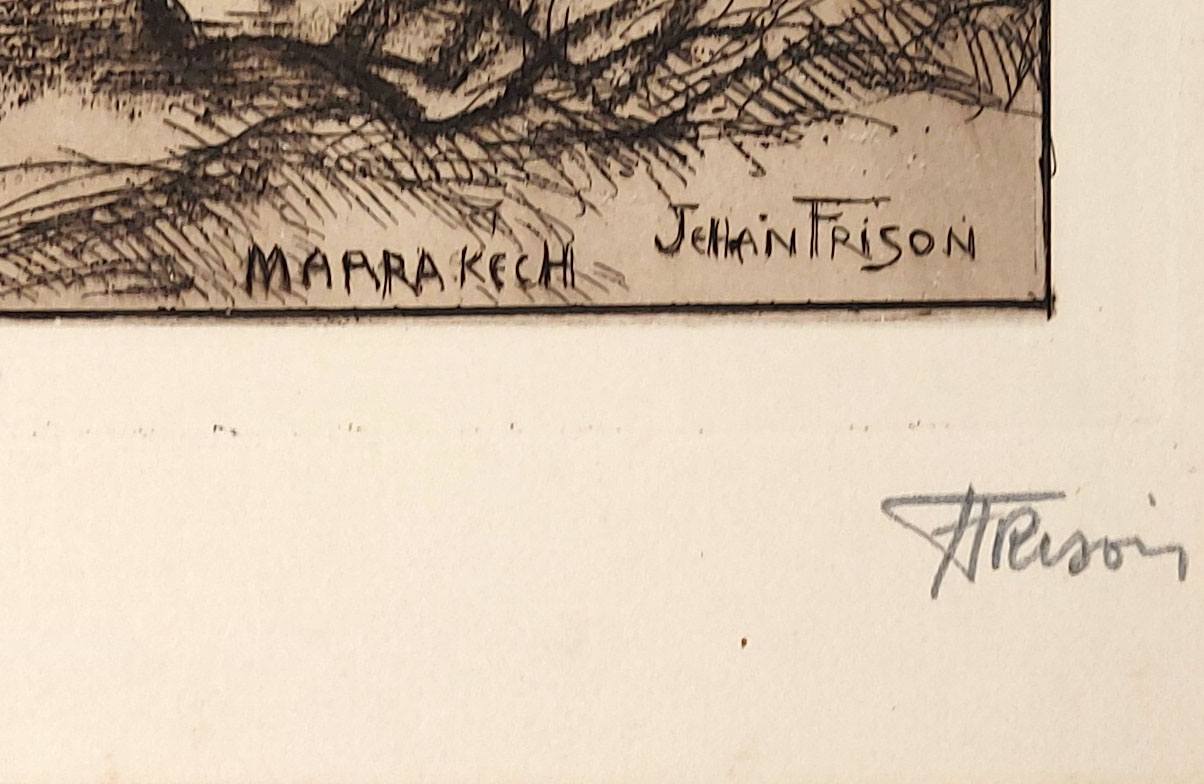 MARRAKECH JEHAN FRISON
JFRison